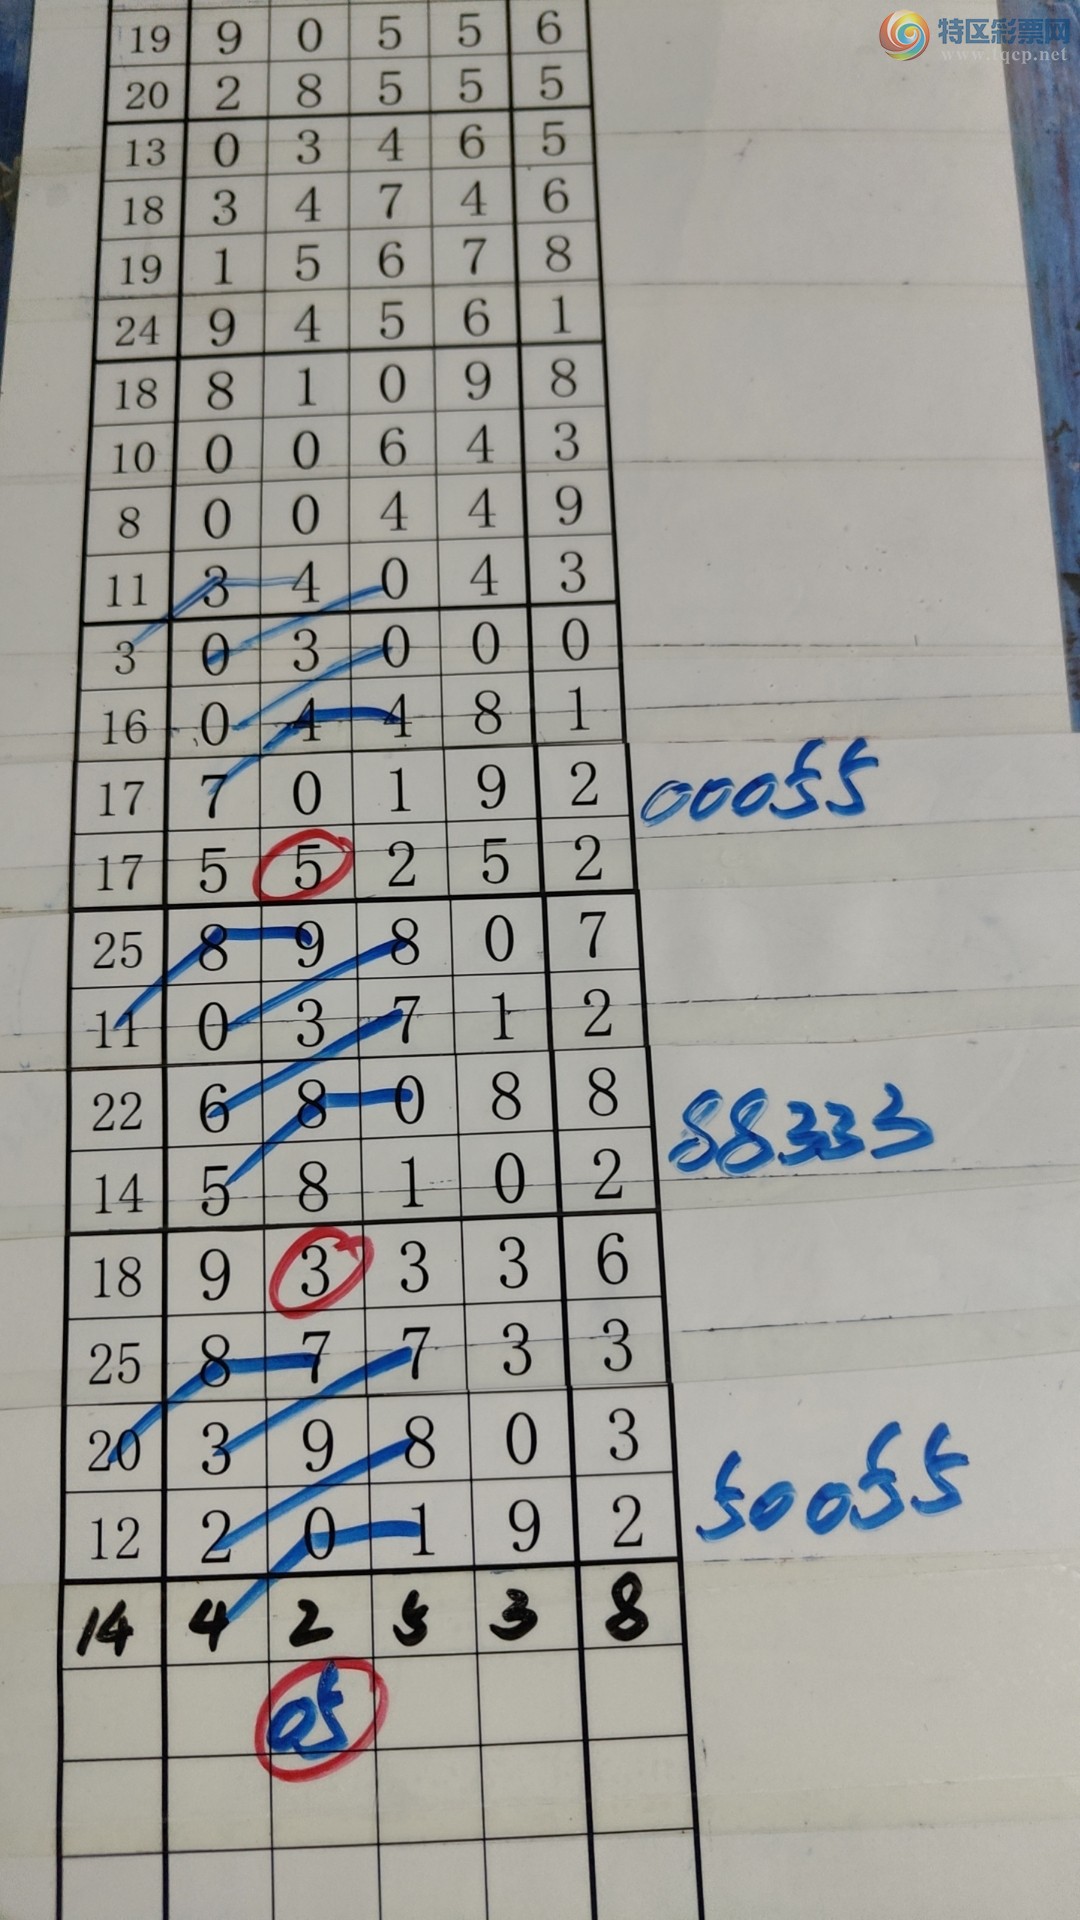 特区彩票网
www.tqcp.net
19 9 0 5 5 6
20 2 8 5 5 5
13 0 3 4 6 5
18 3 4 7 4 6
19 1 5 6 7 8
24 9 4 5 6 1
18 8 1 0 9 8
10 0 0 6 4 3
8 0 0 4 4 9
11 3 4 0 4 3
3 0 3 0 0 0
16 0 4 4 8 1
17 7 0 1 9 2 00055
17 5 5 2 5 2
25 8 9 8 0 7
11 0 3 7 1 2
22 6 8 0 8 8 88333
14 5 8 1 0 2
18 9 3 3 3 6
25 8 7 7 3 3
20 3 9 8 0 3
12 2 0 1 9 2 50055
14 4 2 5 3 8
05